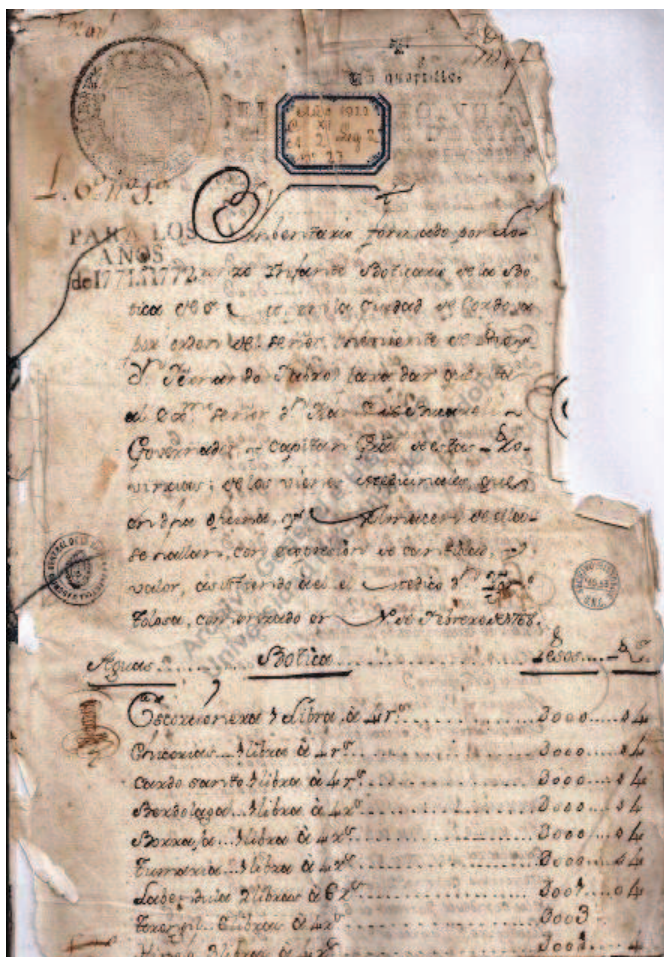 Un quartillo
Año 1922
C. XII
C4 2 Leg 2
nº 27
PARA LOS
AÑOS
de 1771.Y1772.
Imbentario formado por Lo-
renzo Infante Boticario de la Bo-
tica en la Ciudad de Cordova
por orden del Señor Theniente de
Dn. Fernando Fabro para dar quenta
al Señor Dn.
Governador y Capitan Gral de estas Pro-
vincias; de los vienes medicinales que
en dha oficina, y Almacen de ellas
se hallan, con expresion de cantidad, y
valor, asistiendo a el el Medico Dn.
Tolosa, comenzado en 1º de Febrero de 1768.
Aguas Botica Pesos Rs.
Escorcionera 1 Libra, à 4 rs. 3000 04
1 libra à 4 rs. 3000 04
Cardo santo 1 libra à 4 rs. 3000 04
Berdolaga 1 libra à 4 rs. 3000 04
Borraja 1 libra à 4 rs. 3000 04
Fumaria 1 libra à 4 rs. 3000 04
2 libras à 6 rs. 3001 04
6 libras à 4 rs. 3003
3 libras à 4 rs. 3001 4